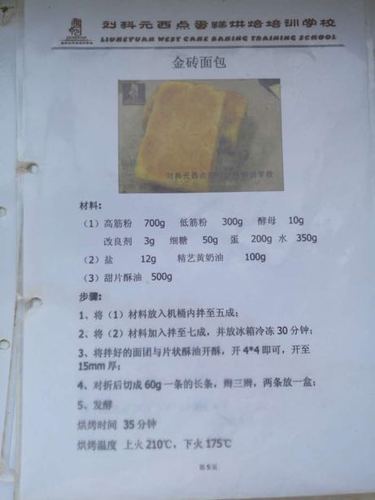 刘科元西点蛋糕烘焙培训学校
LIUKEYUAN WEST CAKE BAKING TRAINING SCHOOL
金砖面包
刘科元西点蛋糕培训学校
材料:
(1)高筋粉 700g 低筋粉 300g 酵母 10g
改良剂 3g 细糖 50g 蛋 200g 水 350g
(2)盐 12g 精艺黄奶油 100g
(3)甜片酥油 500g
步骤:
1、将(1)材料放入机桶内拌至五成;
2、将(2)材料加入拌至七成,并放冰箱冷冻30分钟;
3、将拌好的面团与片状酥油开酥,开4*4即可,开至
15mm厚;
4、对折后切成60g一条的长条,辫三辫,两条放一盒;
5、发酵
烘烤时间 35分钟
烘烤温度 上火210℃,下火175℃